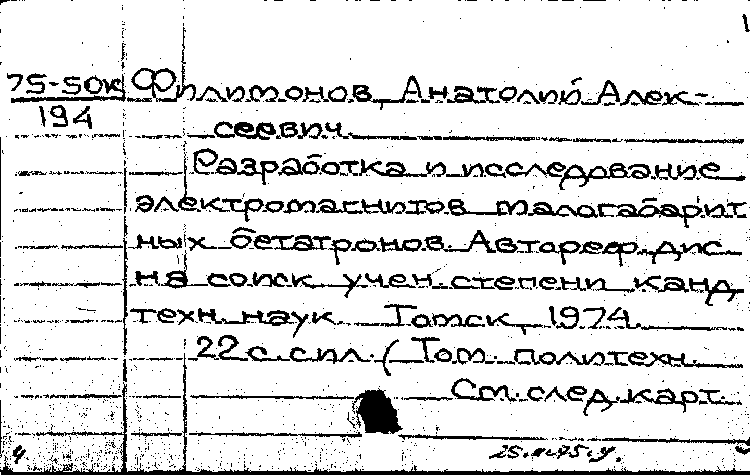 1
75-50к Филимонов, Анатолий Алек-
194 сеевич.
Разработка и исследование
электромагнитов малогабарит
ных бетатронов. Автореф. дис
на соиск учен. степени канд
техн. наук Томск, 1974.
22 с. с ил. (Том. политехн.
См. след. карт.
4